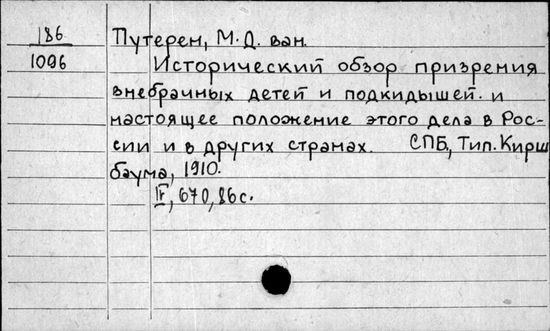 186
1096
Путерен, М.Д. ван.
Исторический обзор призрения
внебрачных детей и подкидышей и
настоящее положение этого дела в Рос-
сии и в других странах. СПБ, Тип. Кирш
баума, 1910.
IV, 670, 86 с.